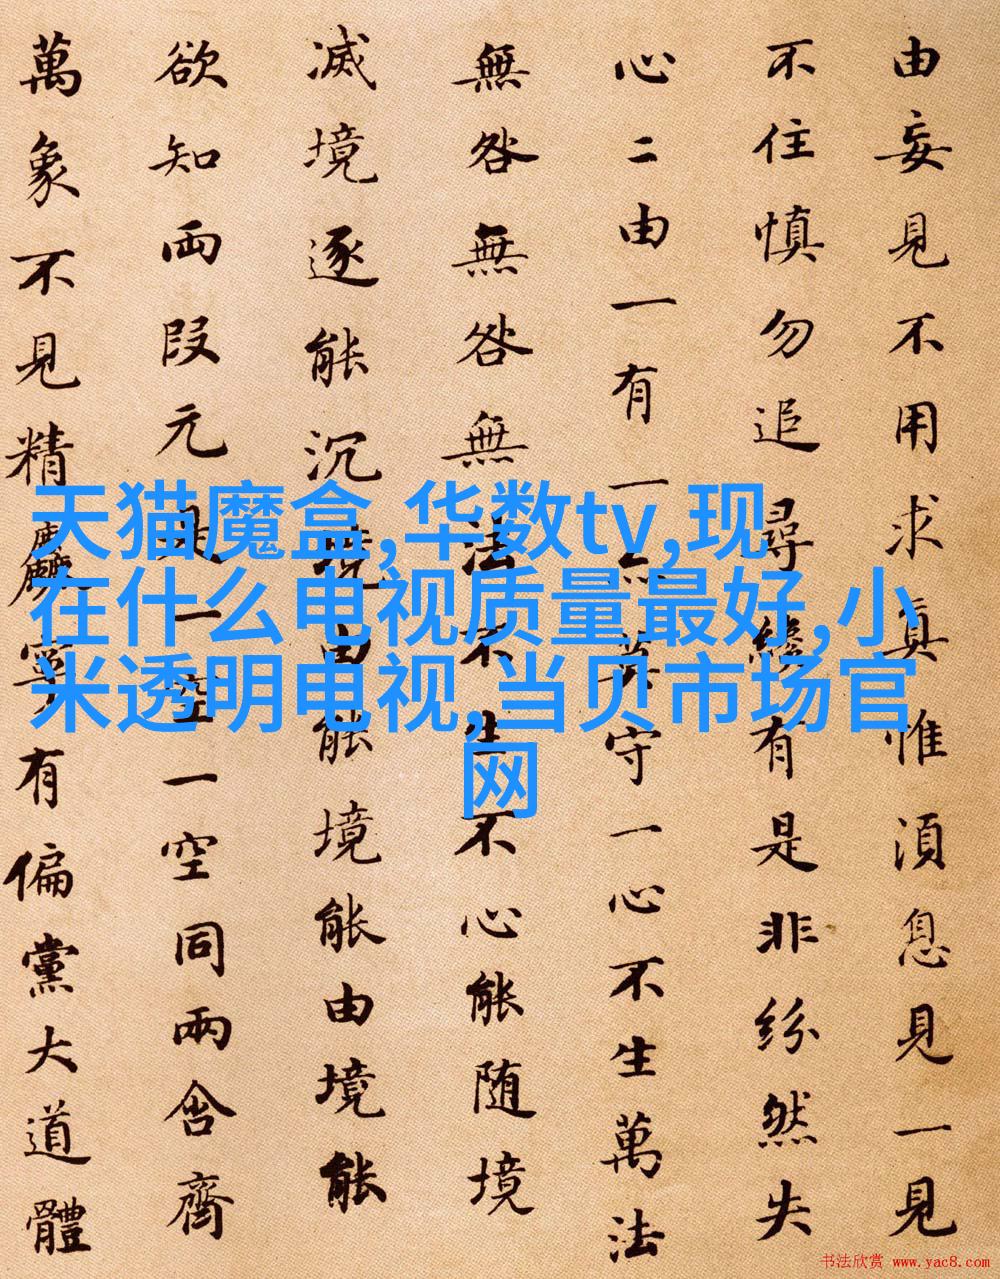 由妄見不用求真惟湏息見一見
不住慎勿追尋纔有是非紛然失
心二由一有一亦莫守一心不生萬法
無咎無咎無法不生不心能随境
滅境逐能沉境由能境能由境能
欲知両段元是一空一空同兩含齊
萬象不見精麤寧有偏黨大道體
天猫魔盒,华数tv,现
在什么电视质量最好,小
米透明电视,当贝市场官
网
书法欣赏 www.yac8.com